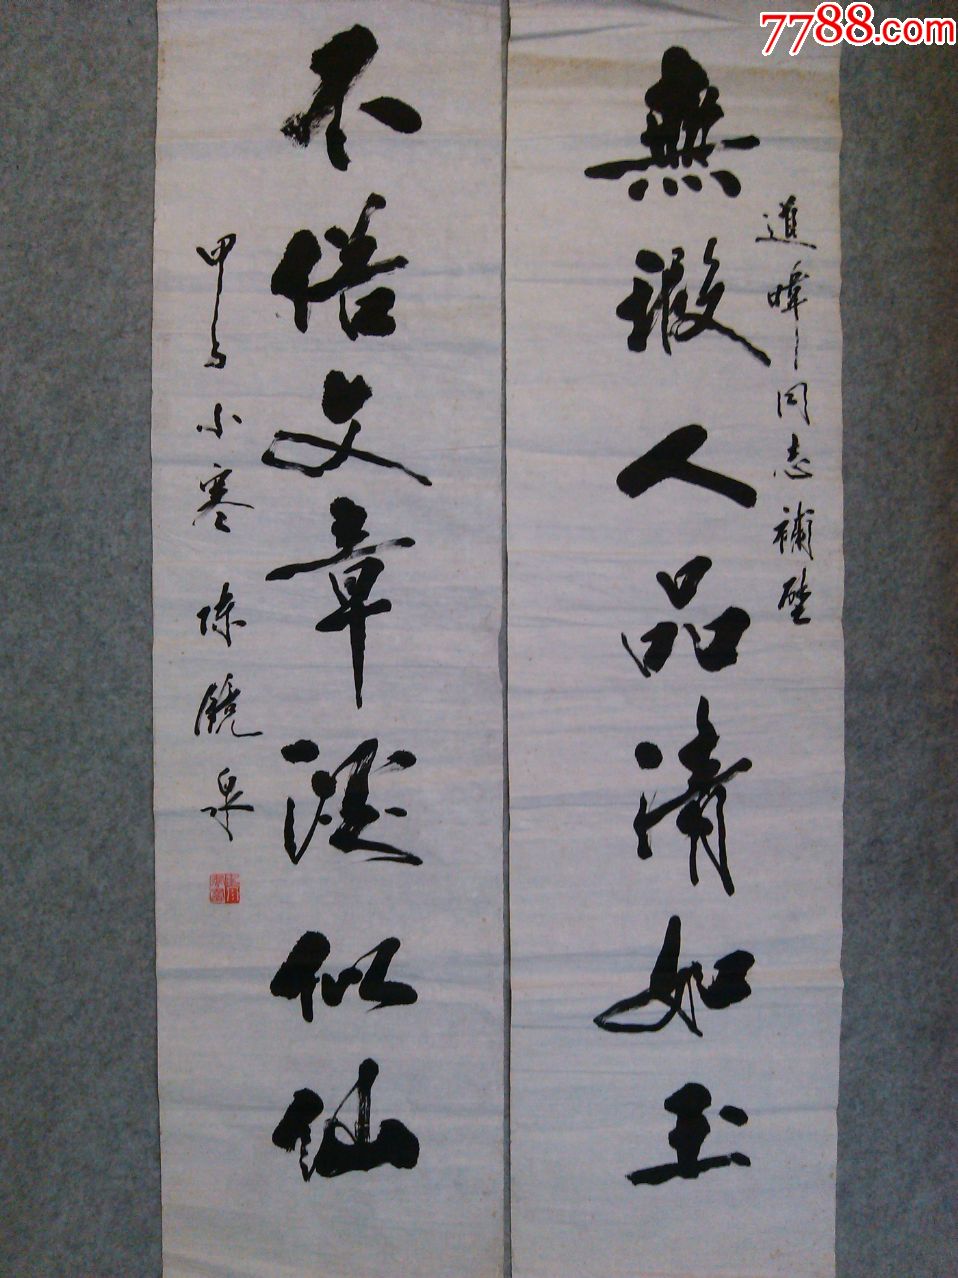 7788.com
進暉同志補壁
無瑕人品清如玉
不俗文章淡似仙
甲子小寒 陳鏡泉